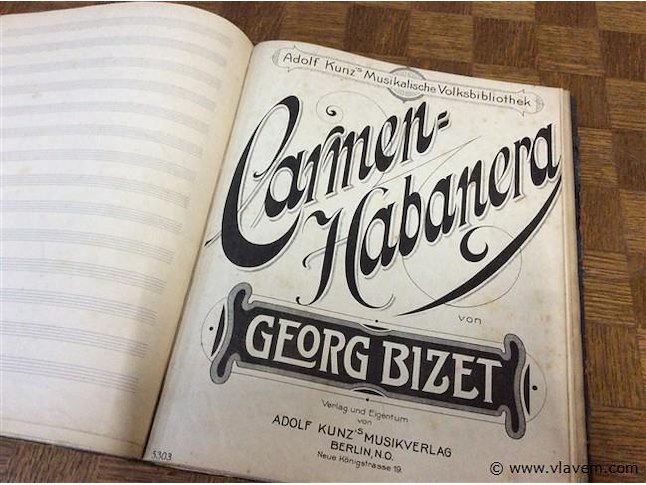 Adolf Kunz's Musikalische Volksbibliothek
Carmen=
Habanera
von
GEORG BIZET
Verlag und Eigentum
von
ADOLF KUNZ'S MUSIKVERLAG
BERLIN, N.O.
Neue Königstrasse 19.
5303
© www.vlavem.com